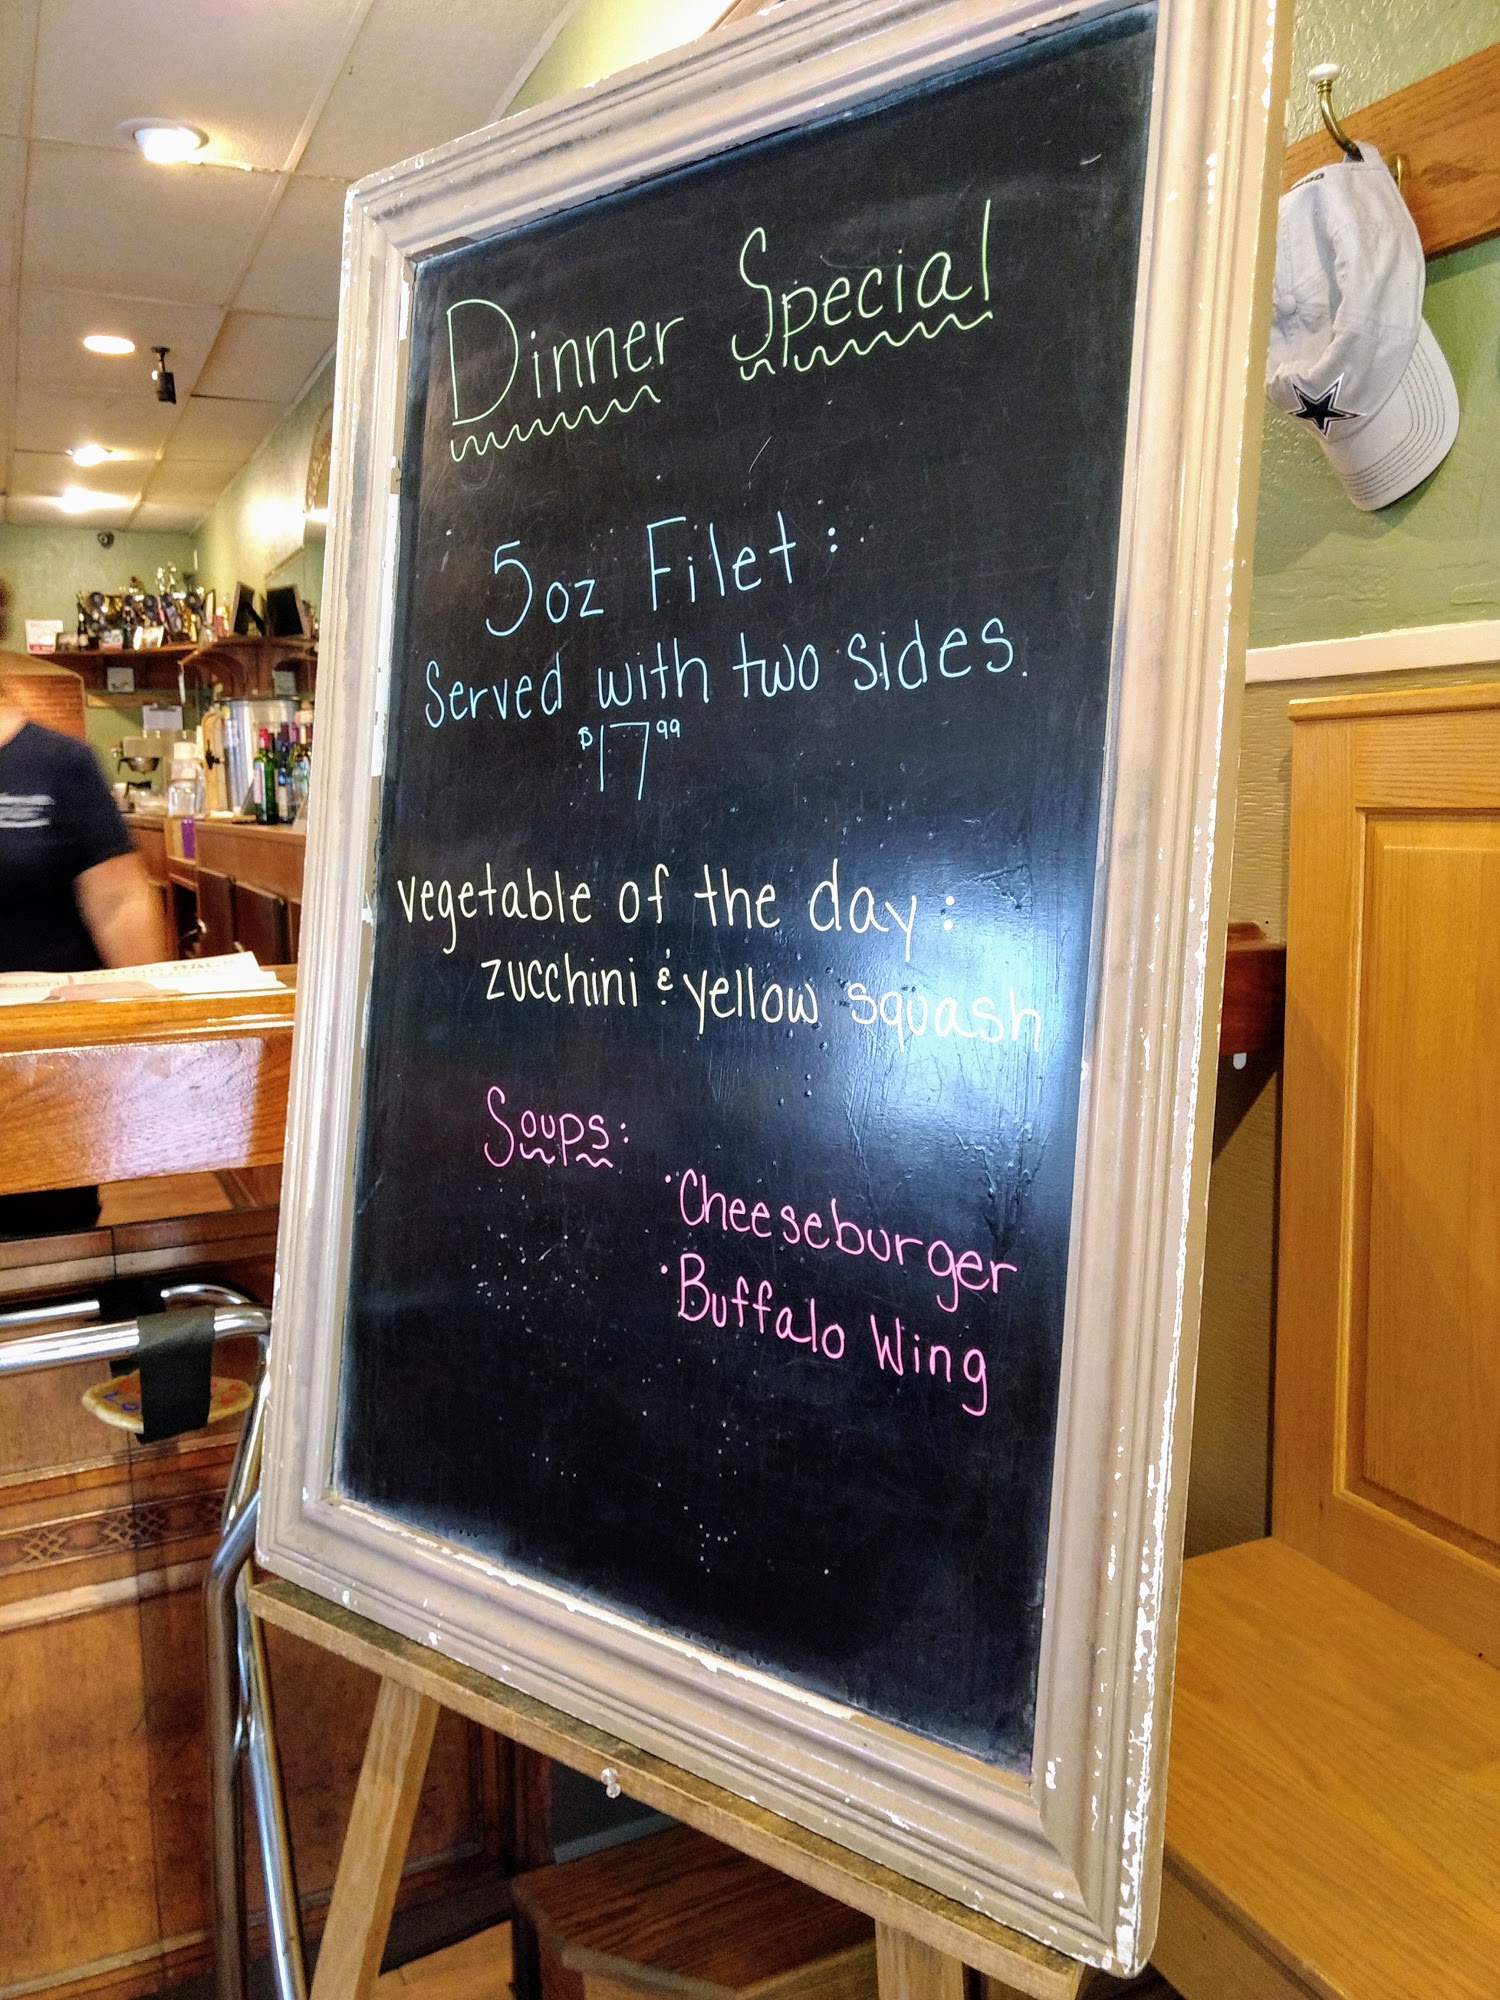 Dinner Special
5oz Filet:
Served with two sides.
$17.99
vegetable of the day:
zucchini & yellow squash
Soups:
· Cheeseburger
· Buffalo Wing